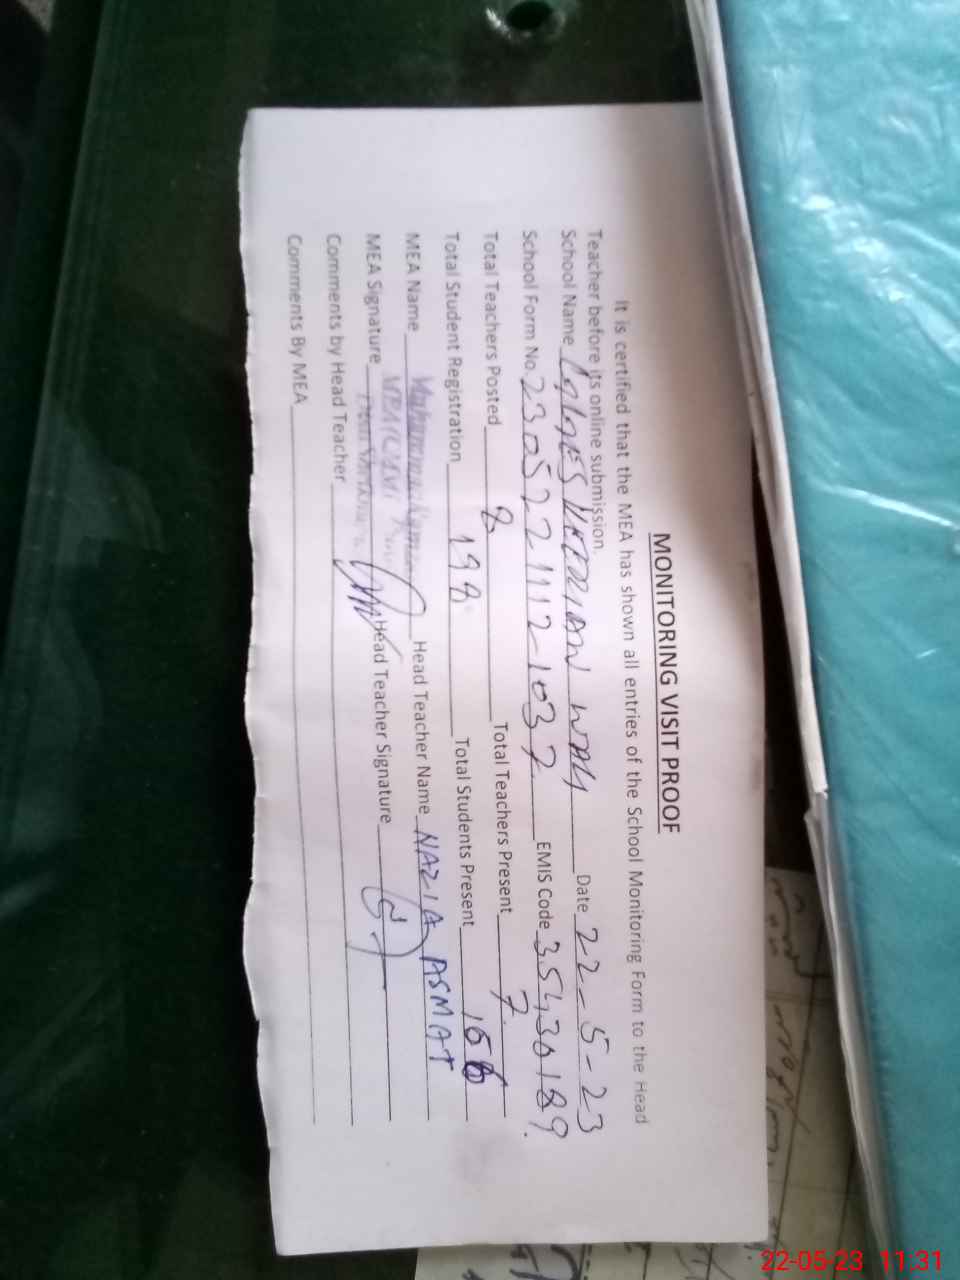 MONITORING VISIT PROOF
It is certified that the MEA has shown all entries of the School Monitoring Form to the Head
Teacher before its online submission.
School Name WALI Date 22-5-23
School Form No. 230522 11112-1037 EMIS Code 35430189.
Total Teachers Posted 8 Total Teachers Present 7
Total Student Registration 198 Total Students Present 166
MEA Name Head Teacher Name NAZIA ASMAT
MEA Signature Head Teacher Signature
Comments by Head Teacher
Comments By MEA
22-05-23 11.31